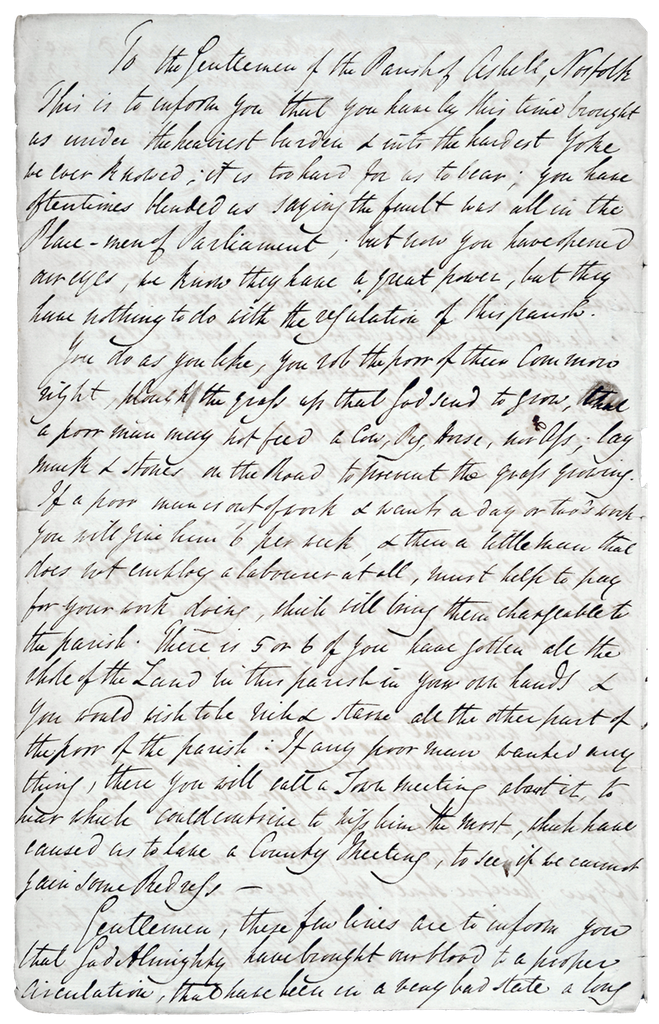 To the Gentlemen of the Parish of Ashell, Norfolk
This is to inform you that you have by this time brought
us under the heaviest burden & into the hardest Yoke
we ever knowed; it is too hard for us to bear; you have
oftentimes blinded us saying the fault was all in the
Place-men of Parliament; but now you have opened
our eyes, we know they have a great power, but they
have nothing to do with the regulation of this parish.
You do as you like, you rob the poor of their Common
right, plough the grass up that God send to grow, that
a poor man may not feed a Cow, Pig, Horse, nor Ass; lay
muck & stones on the Road to prevent the grass growing.
If a poor man is out of work & wants a day or two's work
you will give him 6 per week, & then a little man that
does not employ a labourer at all, must help to pay
for your work doing, which will bring them chargeable to
the parish. There is 5 or 6 of you have gotten all the
whole of the Land in this parish in your own hands &
you would wish to be rich & starve all the other part of
the poor of the parish: If any poor man wanted any
thing, there you will call a Town meeting about it, to
hear which could contrive to hiss him the most, which have
caused us to have a County Meeting, to see if we cannot
gain some Redress. —
Gentlemen, these few lines are to inform you
that God Almighty have brought our blood to a proper
circulation, that have been in a very bad state a long